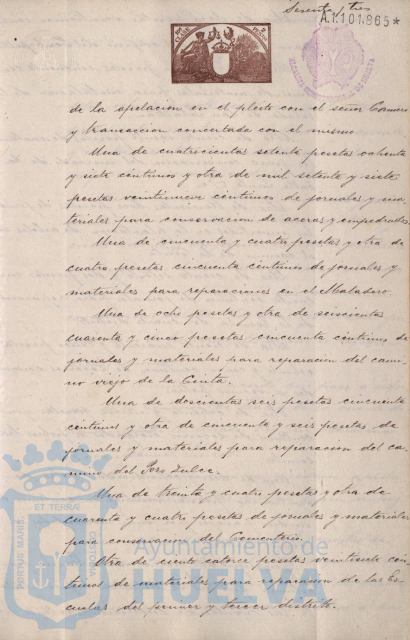 Sesenta y tres
A.1.101.865*
de la apelacion en el pleito con el señor Romero
y transaccion concertada con el mismo
Una de cuatrocientas setenta pesetas ochenta
y siete centimos y otra de mil setenta y siete
pesetas veintinueve centimos de jornales y ma-
teriales para conservacion de aceras y empedrados.
Una de cincuenta y cuatro pesetas y otra de
cuatro pesetas cincuenta centimos de jornales y
materiales para reparaciones en el Matadero.
Una de ocho pesetas y otra de seiscientas
cuarenta y cinco pesetas cincuenta centimos de
jornales y materiales para reparacion del cami-
no viejo de la Cinta.
Una de doscientas seis pesetas cincuenta
centimos y otra de cincuenta y seis pesetas de
jornales y materiales para reparacion del ca-
mino del Pozo Dulce.
Una de treinta y cuatro pesetas y otra de
cuarenta y cuatro pesetas de jornales y materiales
para conservacion del Cementerio.
Otra de ciento catorce pesetas veintisiete cen-
timos de materiales para reparacion de las Es-
cuelas del primer y tercer distrito.
PORTUS MARIS
ET TERRÆ
CUSTODIA
Ayuntamiento de
HUELVA